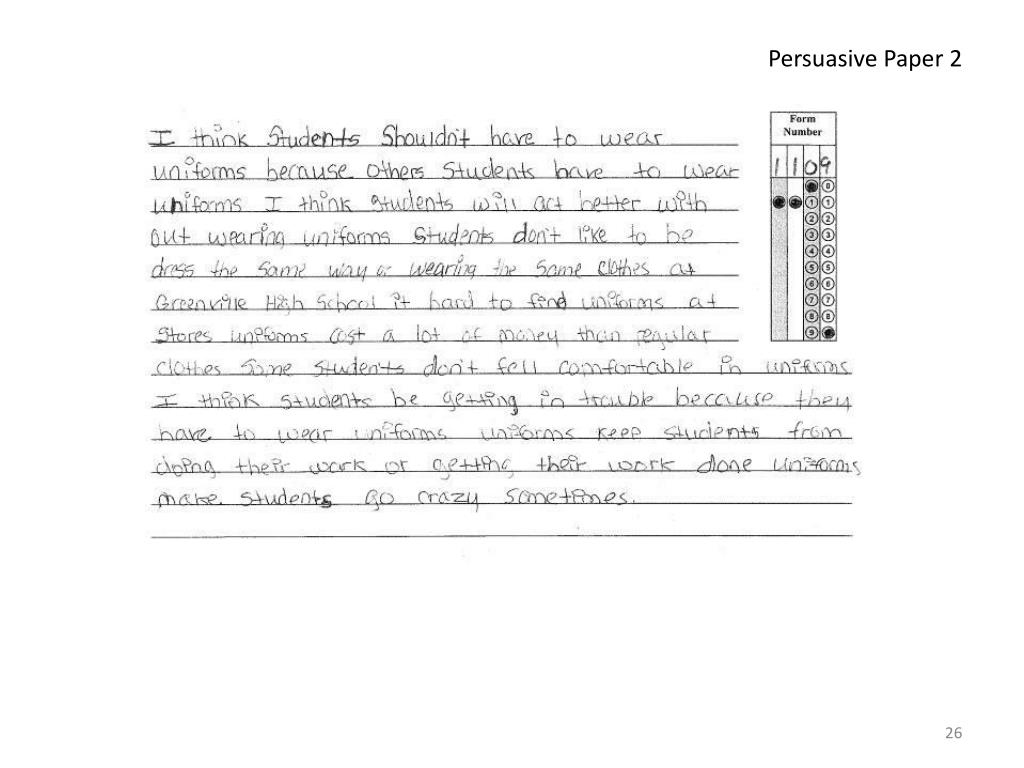 Persuasive Paper 2
Form
Number
1 1 0 9
I think Students Shouldn't have to wear
uniforms because Others Students have to wear
uniforms I think Students will act better with
out wearing uniforms Students don't like to be
dress the same way or wearing the same clothes at
Greenville High School it hard to find uniforms at
Stores uniforms cost a lot of money than regular
clothes some students don't fell comfortable in uniforms
I think students be getting in trouble because they
have to wear uniforms uniforms keep students from
doing their work or getting their work done uniforms
make students go crazy sometimes.
0 0
1 1
2 2
3 3
4 4
5 5
6 6
7 7
8 8
9
26